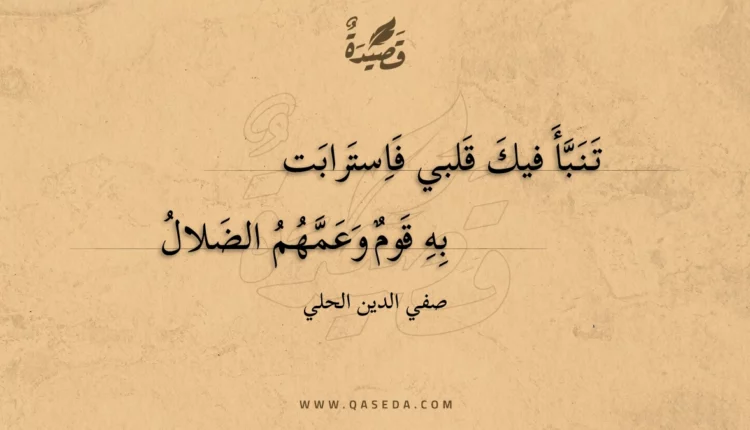 قَصِيْدَةٌ
تَنَبَّأَ فيكَ قَلبي فَاِستَرابَت
بِهِ قَومٌ وَعَمَّهُمُ الضَلالُ
صفي الدين الحلي
WWW.QASEDA.COM